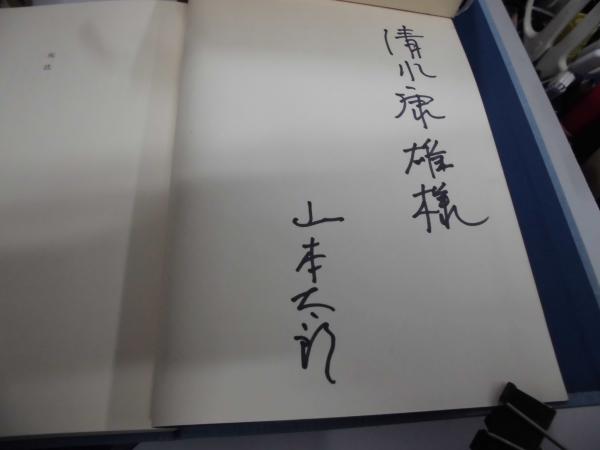 清水康雄様
山本太郎